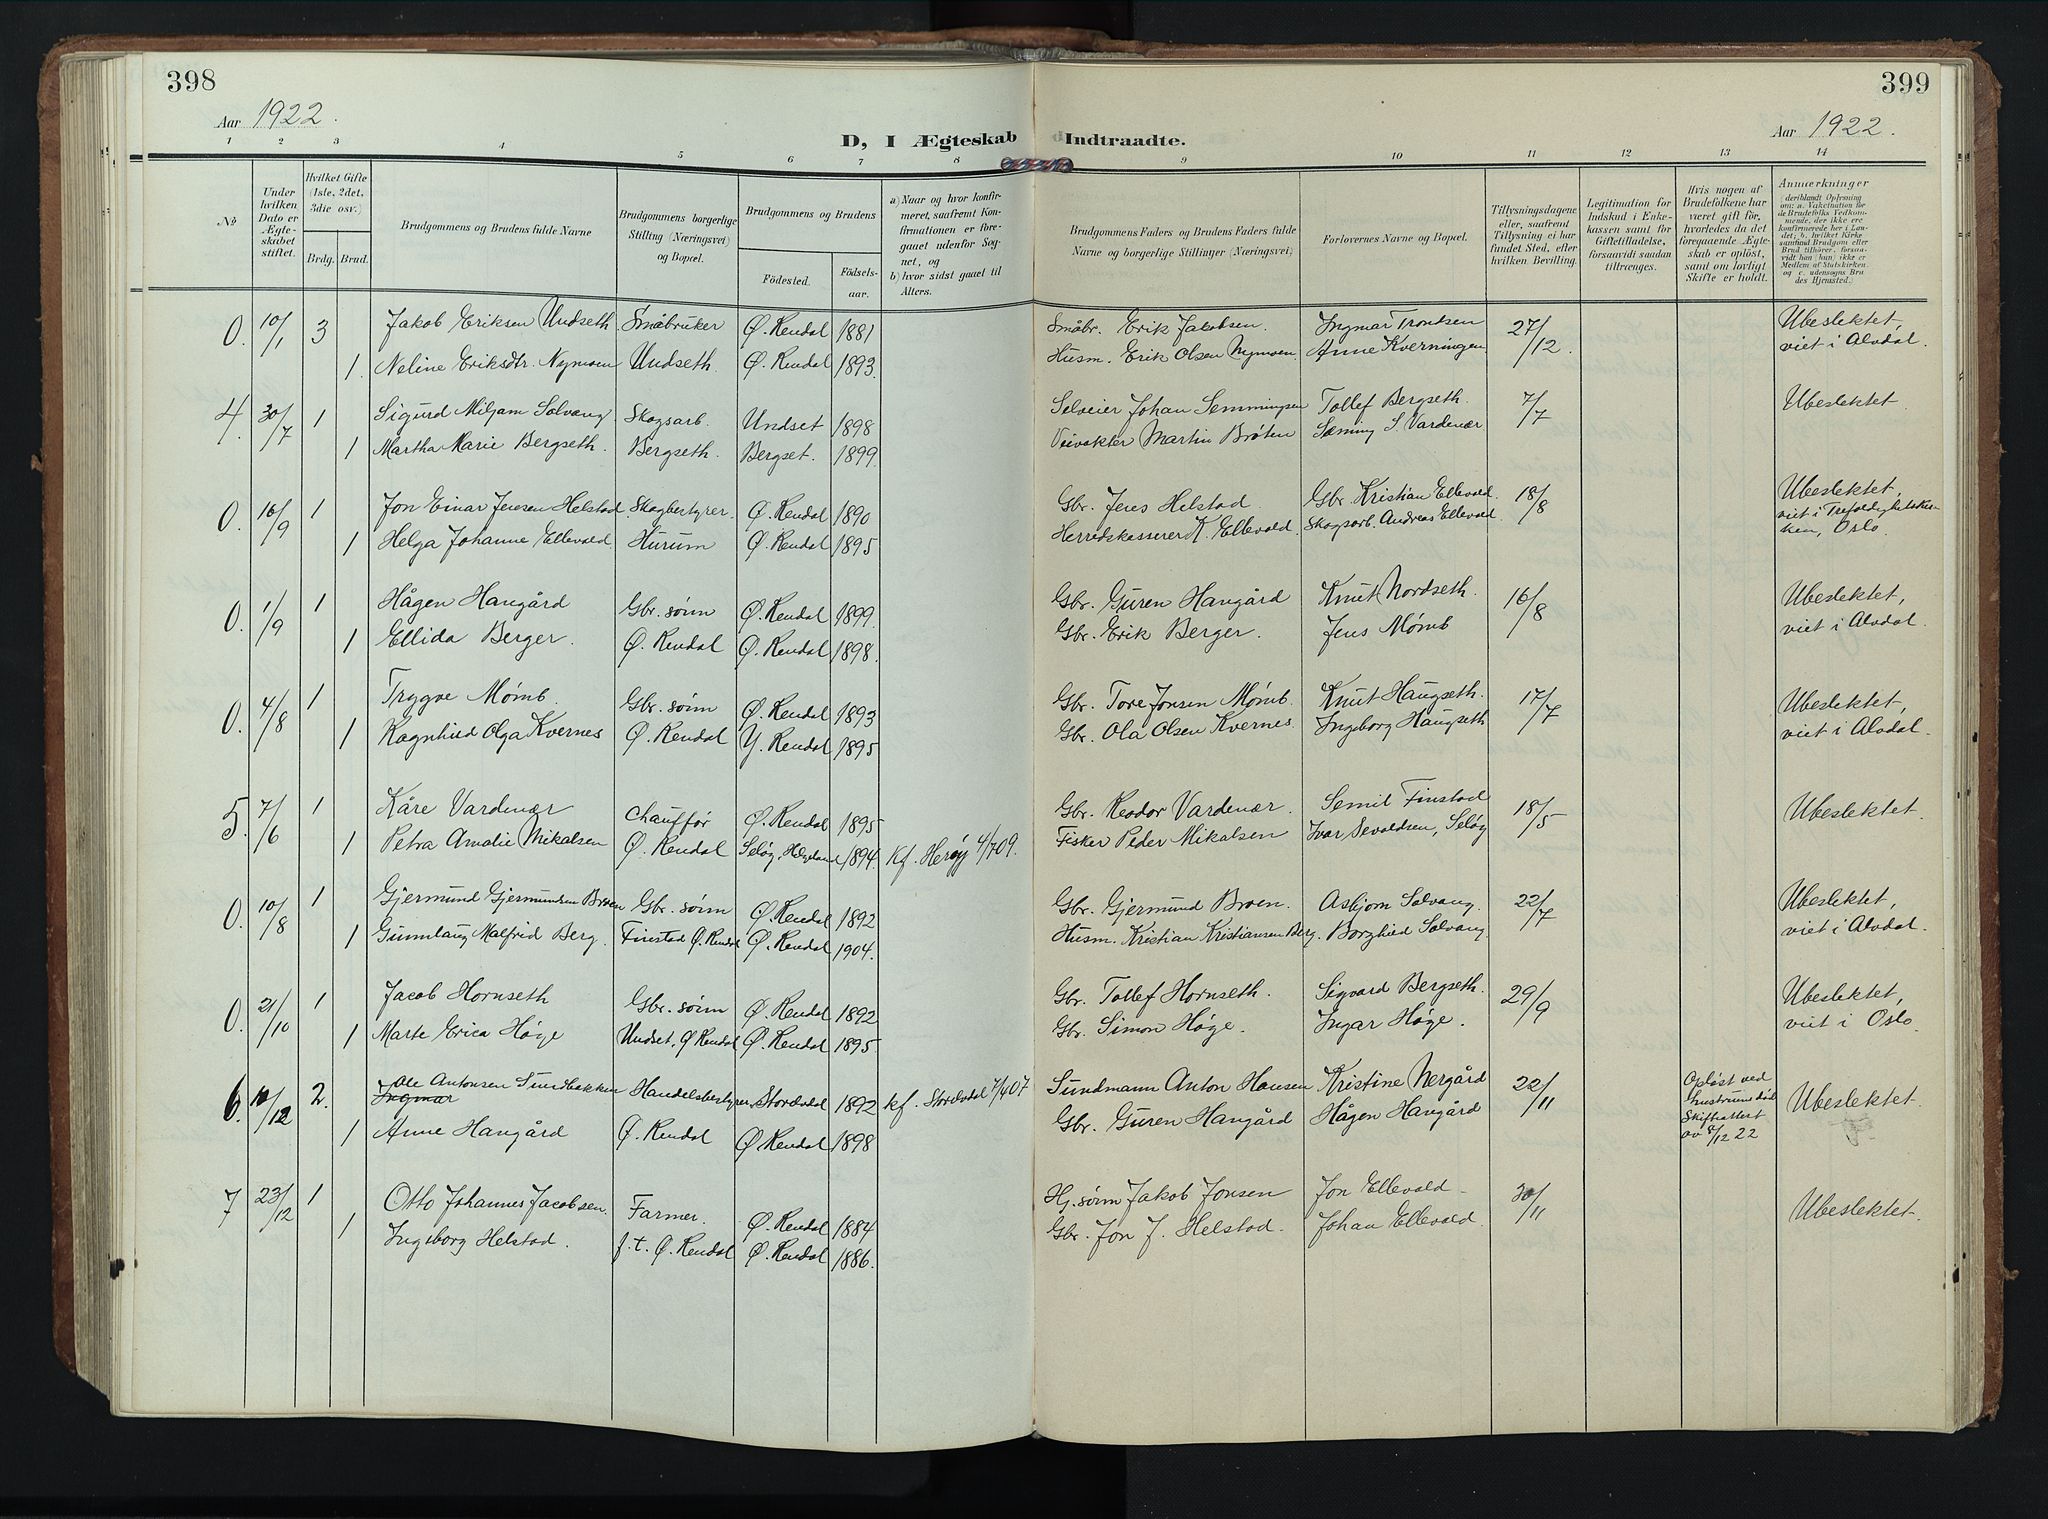 398
Aar 1922.
D, I Ægteskab
1 2 3 4 5 6 7 8
No
Under hvilken Dato er Ægteskabet stiftet.
Hvilket Gifte (1ste, 2det, 3die osv.)
Brdg. Brud.
Brudgommens og Brudens fulde Navne
Brudgommens borgerlige Stilling (Næringsvei) og Bopæl.
Brudgommens og Brudens
Fødested. Fødselsaar.
a) Naar og hvor konfirmeret, saafremt Konfirmationen er foregaaet udenfor Sognet, og
b) hvor sidst gaaet til Alters.
0. 10/1 3 Jakob Eriksen Undseth Småbruker Ø. Rendal 1881
1. Neline Eriksdtr. Nymoen Undseth. Ø. Rendal 1893.
4. 30/7 1 Sigurd Miljam Solvang Skogsarb. Undset 1898
1 Martha Marie Bergseth. Bergseth. Bergset. 1899.
0. 16/9 1 Jon Einar Jensen Helstad. Skogbestyrer. Ø. Rendal 1890
1 Helga Johanne Ellevold Hurum Ø. Rendal 1895
0. 1/9 1 Hågen Hangård Gbr. sønn Ø. Rendal 1899.
1 Ellida Berger. Ø. Rendal Ø. Rendal 1898.
0. 4/8 1 Trygve Mømb. Gbr. sønn Ø. Rendal 1893
1 Ragnhild Olga Kvernes Ø. Rendal Y. Rendal 1895
5. 7/6 1 Kåre Vardenær Chauffør Ø. Rendal 1895
1 Petra Amalie Mikalsen Ø. Rendal Seløy, Helgeland 1894. Kf. Herøy 4/7 09.
0. 10/8 1 Gjermund Gjermundsen Broen Gbr. sønn Ø. Rendal 1892
1 Gunnlaug Malfrid Berg. Finstad Ø. Rendal Ø. Rendal 1904.
0. 21/10 1 Jacob Hornseth Gbr. sønn Ø. Rendal 1892
1 Marte Erica Høge Undset, Ø Rendal Ø. Rendal 1895
6. 10/12 2. Ole Antonsen Sundbakken Handelsbestyrer Stordal 1892 kf. Stordal 7/4 07
Ingmar
1 Anne Hangård Ø. Rendal Ø. Rendal 1898
7 23/12 1 Otto Johannes Jacobsen. Farmer. Ø. Rendal 1884
1 Ingeborg Helstad. f. t. Ø. Rendal Ø. Rendal 1886.
399
Indtraadte.
Aar 1922.
9 10 11 12 13 14
Brudgommens Faders og Brudens Faders fulde Navne og borgerlige Stillinger (Næringsvei)
Forlovernes Navne og Bopæl.
Tillysningsdagene eller, saafremt Tillysning ei har fundet Sted, efter hvilken Bevilling.
Legitimation for Indskud i Enkekassen samt for Giftetilladelse, forsaavidt saadan tiltrænges.
Hvis nogen af Brudefolkene har været gift før, hvorledes da det foregaaende Ægteskab er opløst, samt om lovligt Skifte er holdt.
Anmærkninger (deriblandt Oplysning om: a. Vaccination for de Brudefolks Vedkommende, der ikke ere konfirmerede her i Landet; b. hvilket Kirkesamfund Brudgom eller Brud tilhører, forsaavidt han (hun) ikke er Medlem af Statskirken og c. udensogns Brudes Hjemsted.)
Småbr. Erik Jakobsen. Ingmar Trondsen 27/12 Ubeslektet,
Husm. Erik Olsen Nymoen Anne Kverningen viet i Alvdal.
Selveier Johan Semmingsen Tollef Bergseth. 7/7 Ubeslektet.
Veivokter Martin Brøten Sæming S. Vardenær
Gbr. Jens Helstad Gbr. Kristian Ellevold. 18/8 Ubeslektet,
Herredskasserer K. Ellevold. Skogsarb. Andreas Ellevold. viet i Trefoldighetskirken, Oslo.
Gbr. Guren Hangård Knut Nordseth. 16/8 Ubeslektet,
Gbr. Erik Berger. Jens Mømb viet i Alvdal.
Gbr. Tore Jonsen Mømb. Knut Haugseth. 17/7 Ubeslektet,
Gbr. Ola Olsen Kvernes. Ingeborg Haugseth viet i Alvdal.
Gbr. Reodor Vardenær. Semil Finstad 18/5 Ubeslektet.
Fisker Peder Mikalsen Ivar Sevaldsen, Seløy
Gbr. Gjermund Broen. Asbjørn Solvang. 22/7 Ubeslektet,
Husm. Kristian Kristiansen Berg. Borghild Solvang viet i Alvdal.
Gbr. Tollef Hornseth. Sigvard Bergseth. 29/9 Ubeslektet,
Gbr. Simon Høge. Ingar Høge. viet i Oslo.
Sundmann Anton Hansen Kristine Nergård 22/11 Opløst ved hustruens død Skifteattest av 8/12 22 Ubeslektet.
Gbr. Guren Hangård Hågen Hangård
Hj. sønn Jakob Jonsen Jon Ellevold 30/11 Ubeslektet.
Gbr. Jon J. Helstad Johan Ellevold.